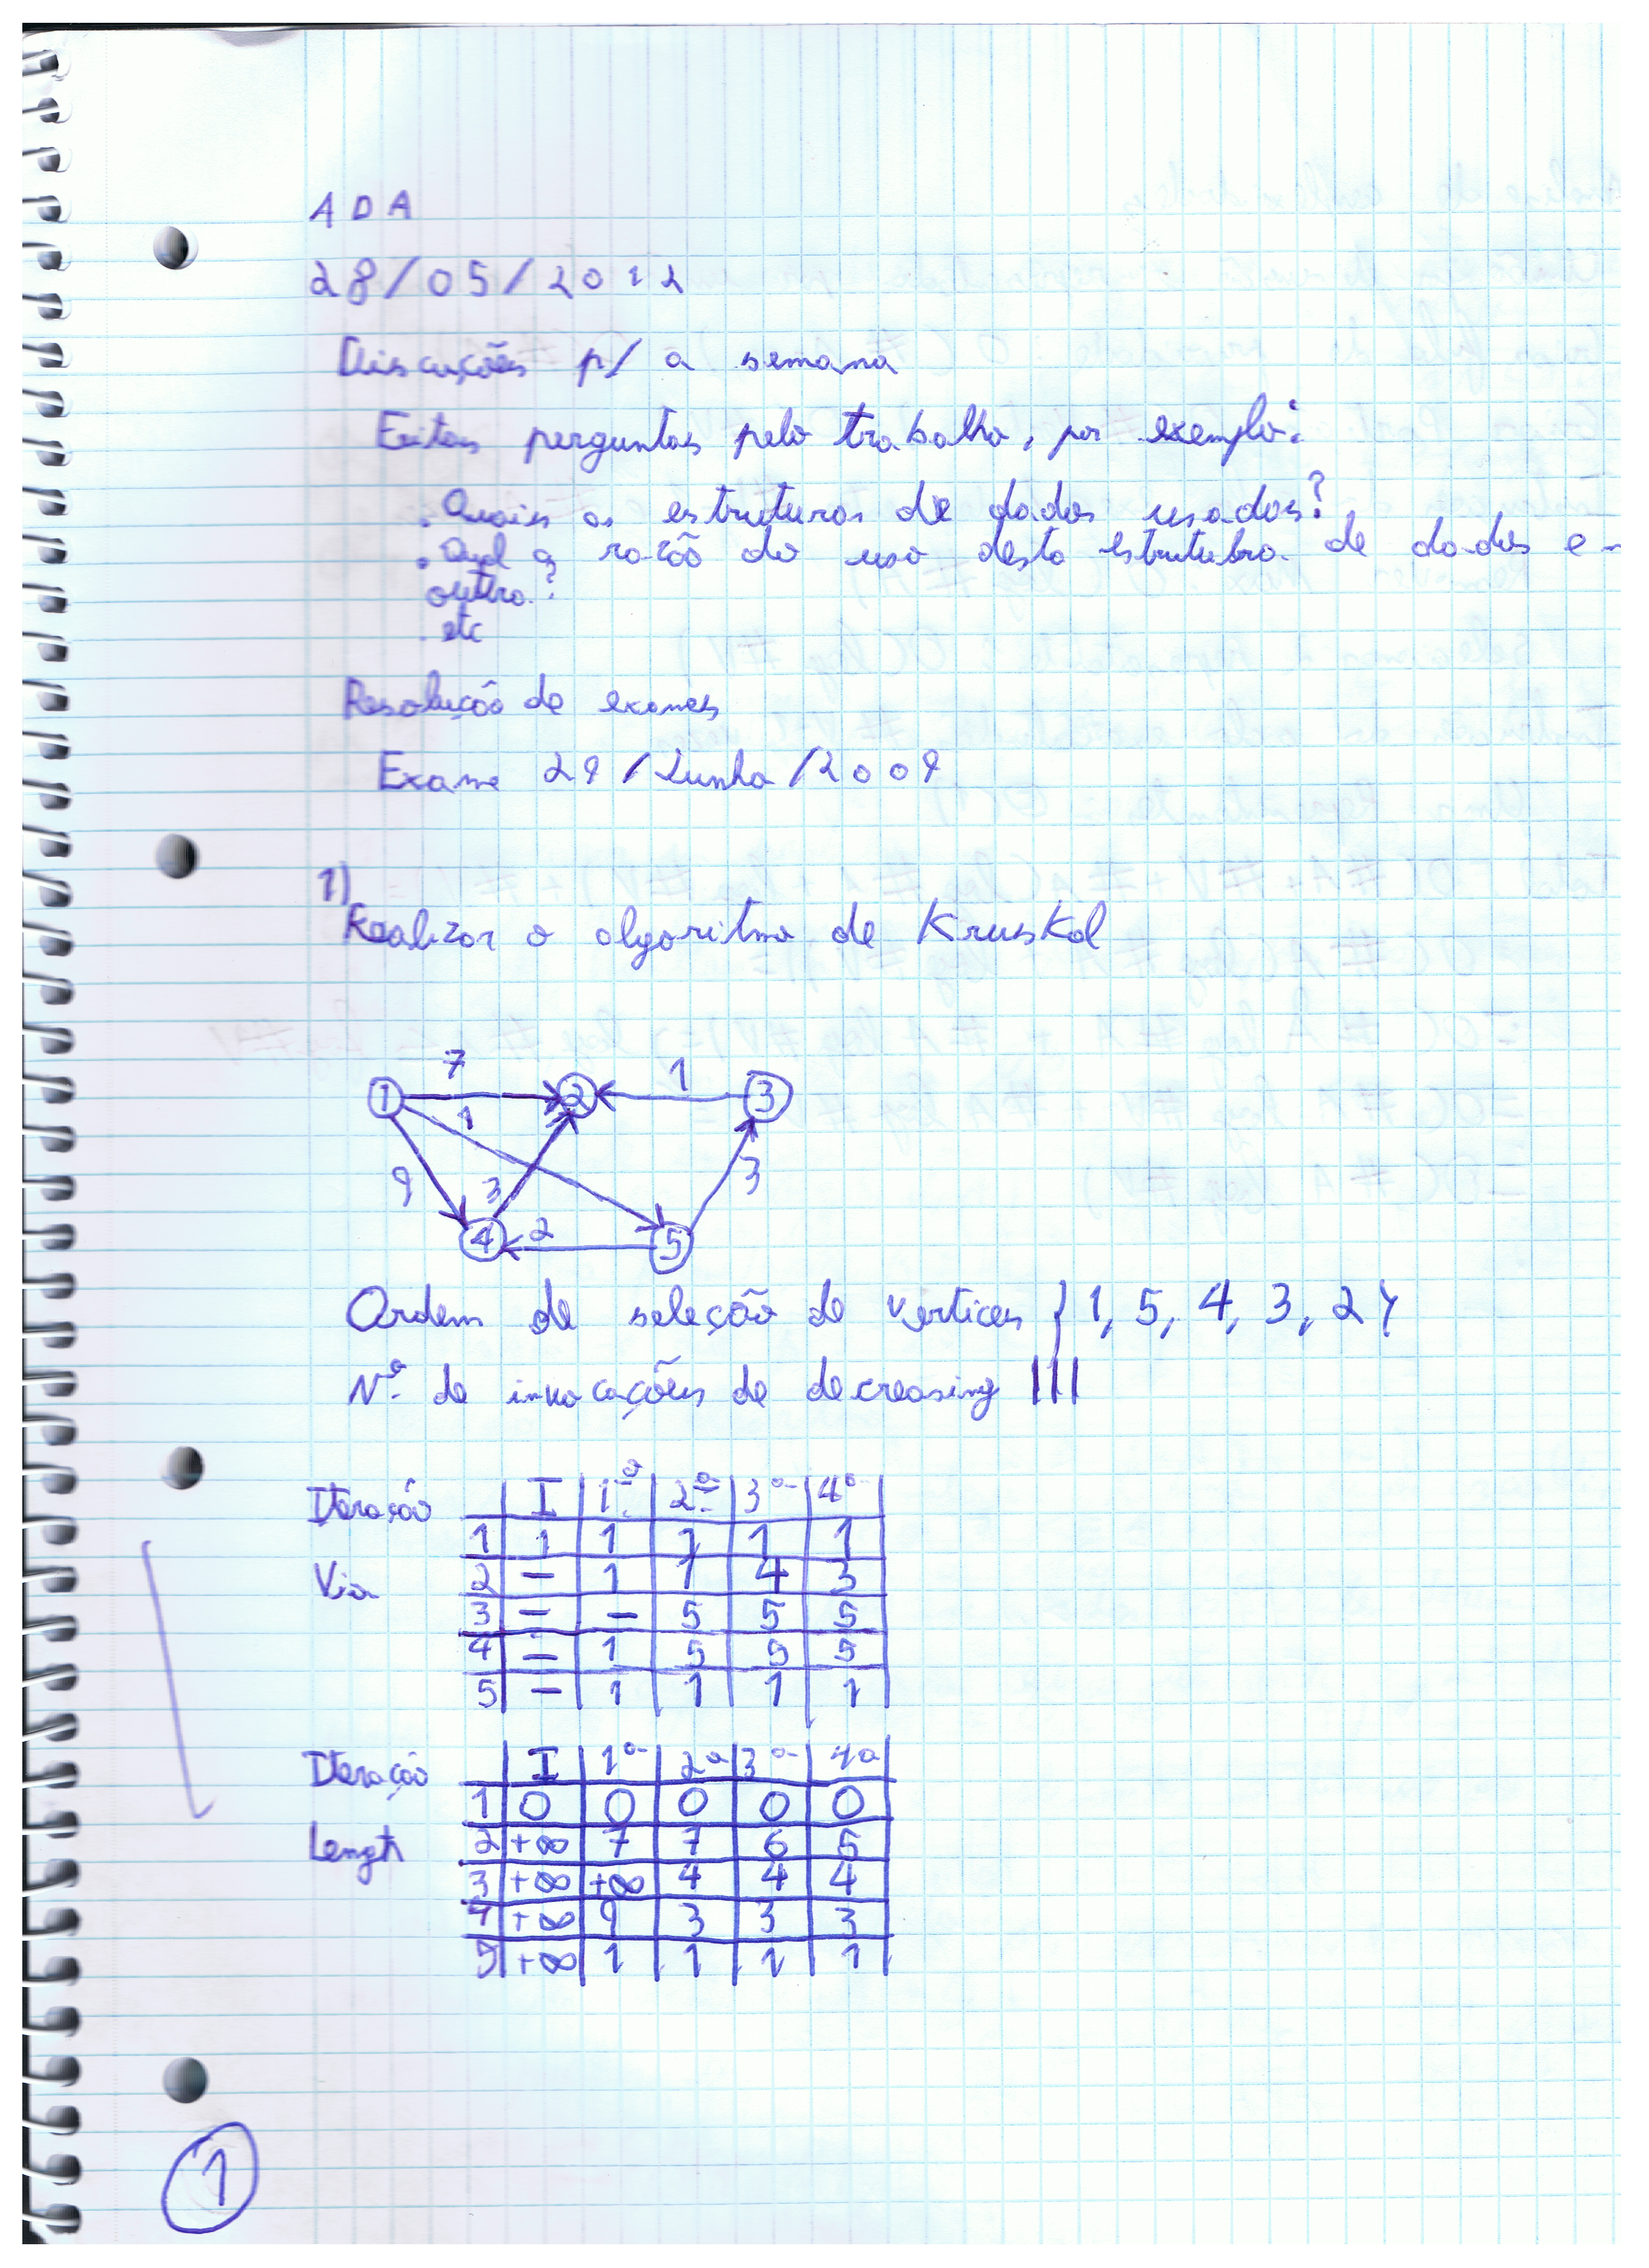 ADA
28/05/2012
Discuções p/ a semana
Feitas perguntas pelo trabalho, por exemplo:
. Quais as estruturas de dados usados?
. Qual a razão do uso desta estrutubra de dados e
outra?
. etc
Resolução de exames
Exame 29/Junho/2009
1)
Realizar o algoritmo de Kruskal
7 1
1 2 3
1
9 3 3
4 2 5
Ordem de seleção de vertices {1, 5, 4, 3, 2}
Nº de invocações de decreasing |||
Iteração I 1ª 2ª 3ª 4ª
1 1 1 1 1 1
Via 2 - 1 1 4 3
3 - - 5 5 5
4 - 1 5 5 5
5 - 1 1 1 1
Iteração I 1ª 2ª 3ª 4ª
1 0 0 0 0 0
Length 2 +∞ 7 7 6 5
3 +∞ +∞ 4 4 4
4 +∞ 9 3 3 3
5 +∞ 1 1 1 1
1